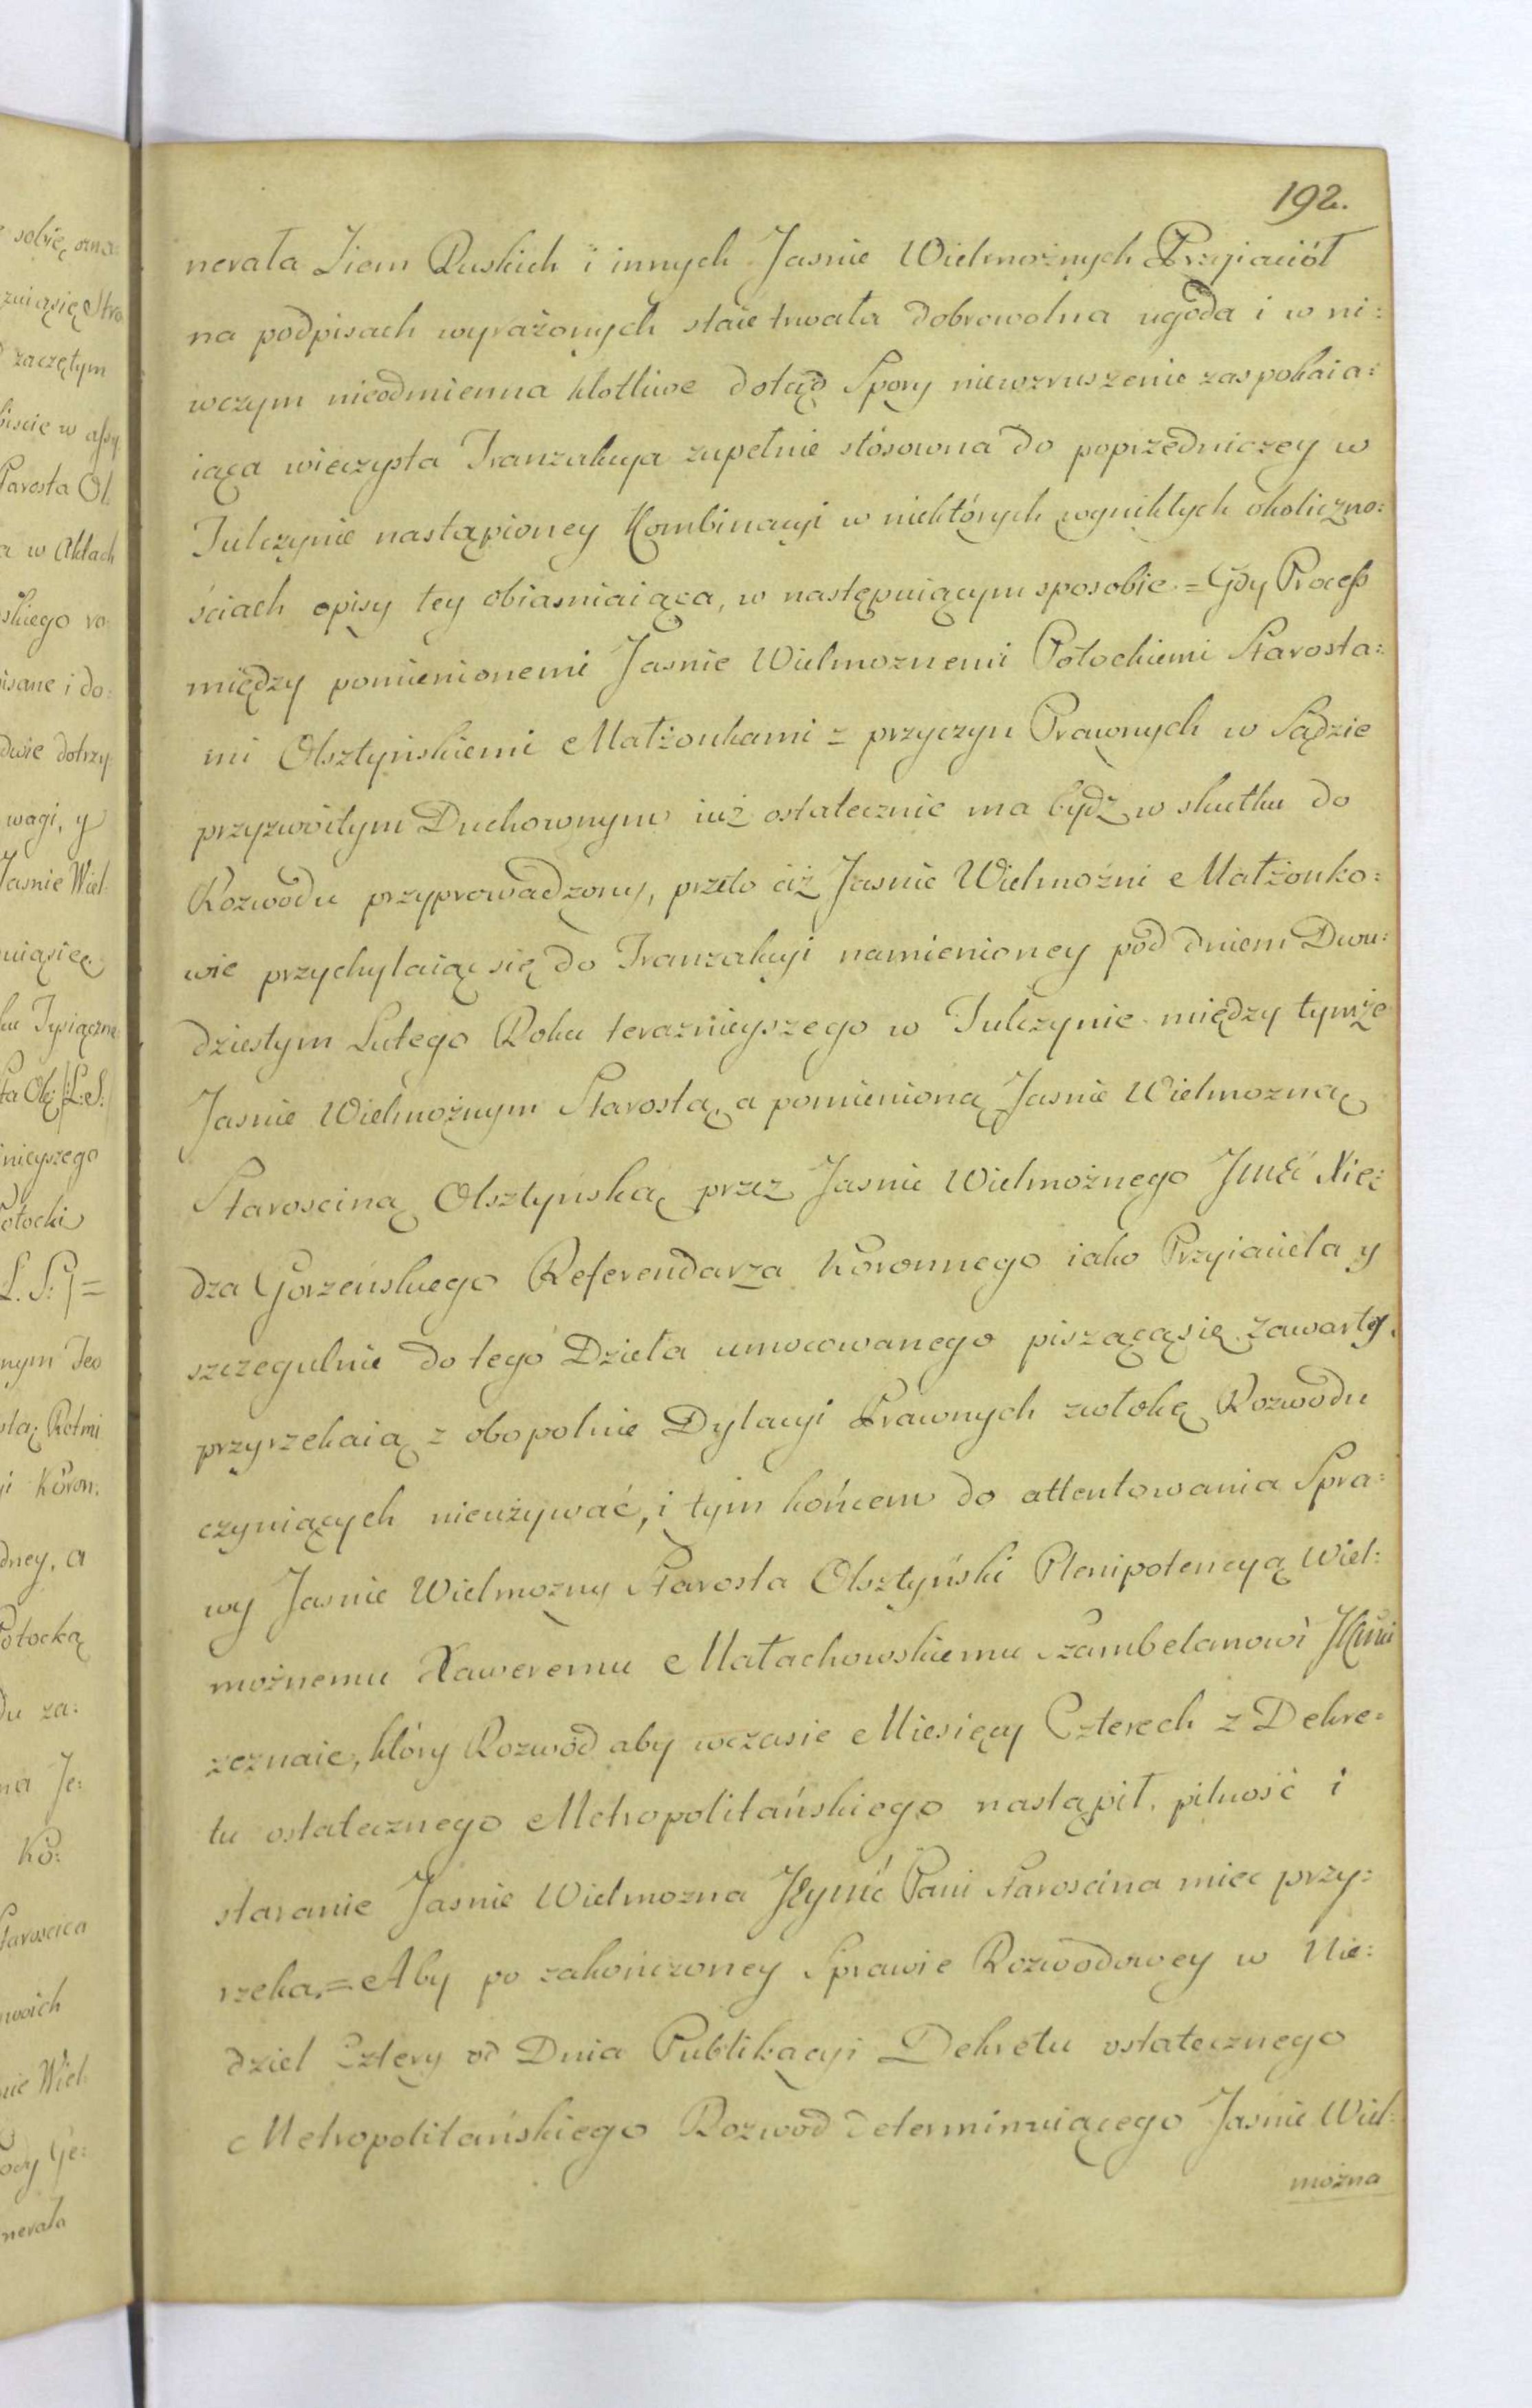 192.
nerała Ziem Ruskich i innych Jasnie Wielmożnych Przyiaciół
na podpisach wyrażonych staie trwała dobrowolna ugoda i w ni:
wczym nieodmienna kłotliwe dotąd Spory niewzruszenie zaspokaia:
iąca wieczysta Tranzakcya zupełnie stósowna do poprzedniczey w
Tulczynie nastąpioney Kombinacyi w niektórych wynikłych okoliczno:
ściach opisy tey obiasniaiąca, w następuiącym sposobie. = Gdy Process
między pomienionemi Jasnie Wielmoznemi Potockiemi Starosta:
mi Olsztyńskiemi Małżonkami z przyczyn Prawnych w Sądzie
przyzwoitym Duchownym iuż ostatecznie ma bydź w skutku do
Rozwodu przyprowadzony, przeto ciż Jasnie Wielmożni Małżonko:
wie przychylaiąc się do Tranzakcyi namienioney pod dniem Dwu:
dziestym Lutego Roku terazniejszego w Tulczynie między tymże
Jasnie Wielmożnym Starostą, a pomienioną Jasnie Wielmozną
Starościną Olsztyńską przez Jasnie Wielmożnego JMći Xię:
dza Gorzeńskiego Referendarza Koronnego iako Przyiaciela y
szczegulnie do tego Dzieła umocowanego piszącąsię zawartey,
przyrzekaią z obopolnie Dylacyi Prawnych zwłokę Rozwodu
czyniących nieużywać, i tym końcem do attentowania Spra:
wy Jasnie Wielmożny Starosta Olsztyński Plenipotencyą Wiel:
możnemu Xaweremu Małachowskiemu Szambelanowi
zeznaie, który Rozwód aby wczasie Miesięcy Czterech z Dekre:
tu ostatecznego Metropolitańskiego nastąpił, pilność i
staranie Jasnie Wielmozna JEymć Pani Starościna miec przy:
rzeka. = Aby po zakończoney Sprawie Rozwodowey w Nie:
dziel Cztery od Dnia Publikacyi Dekretu ostatecznego
Metropolitańskiego Rozwód determinuiącego Jasnie Wiel:
można